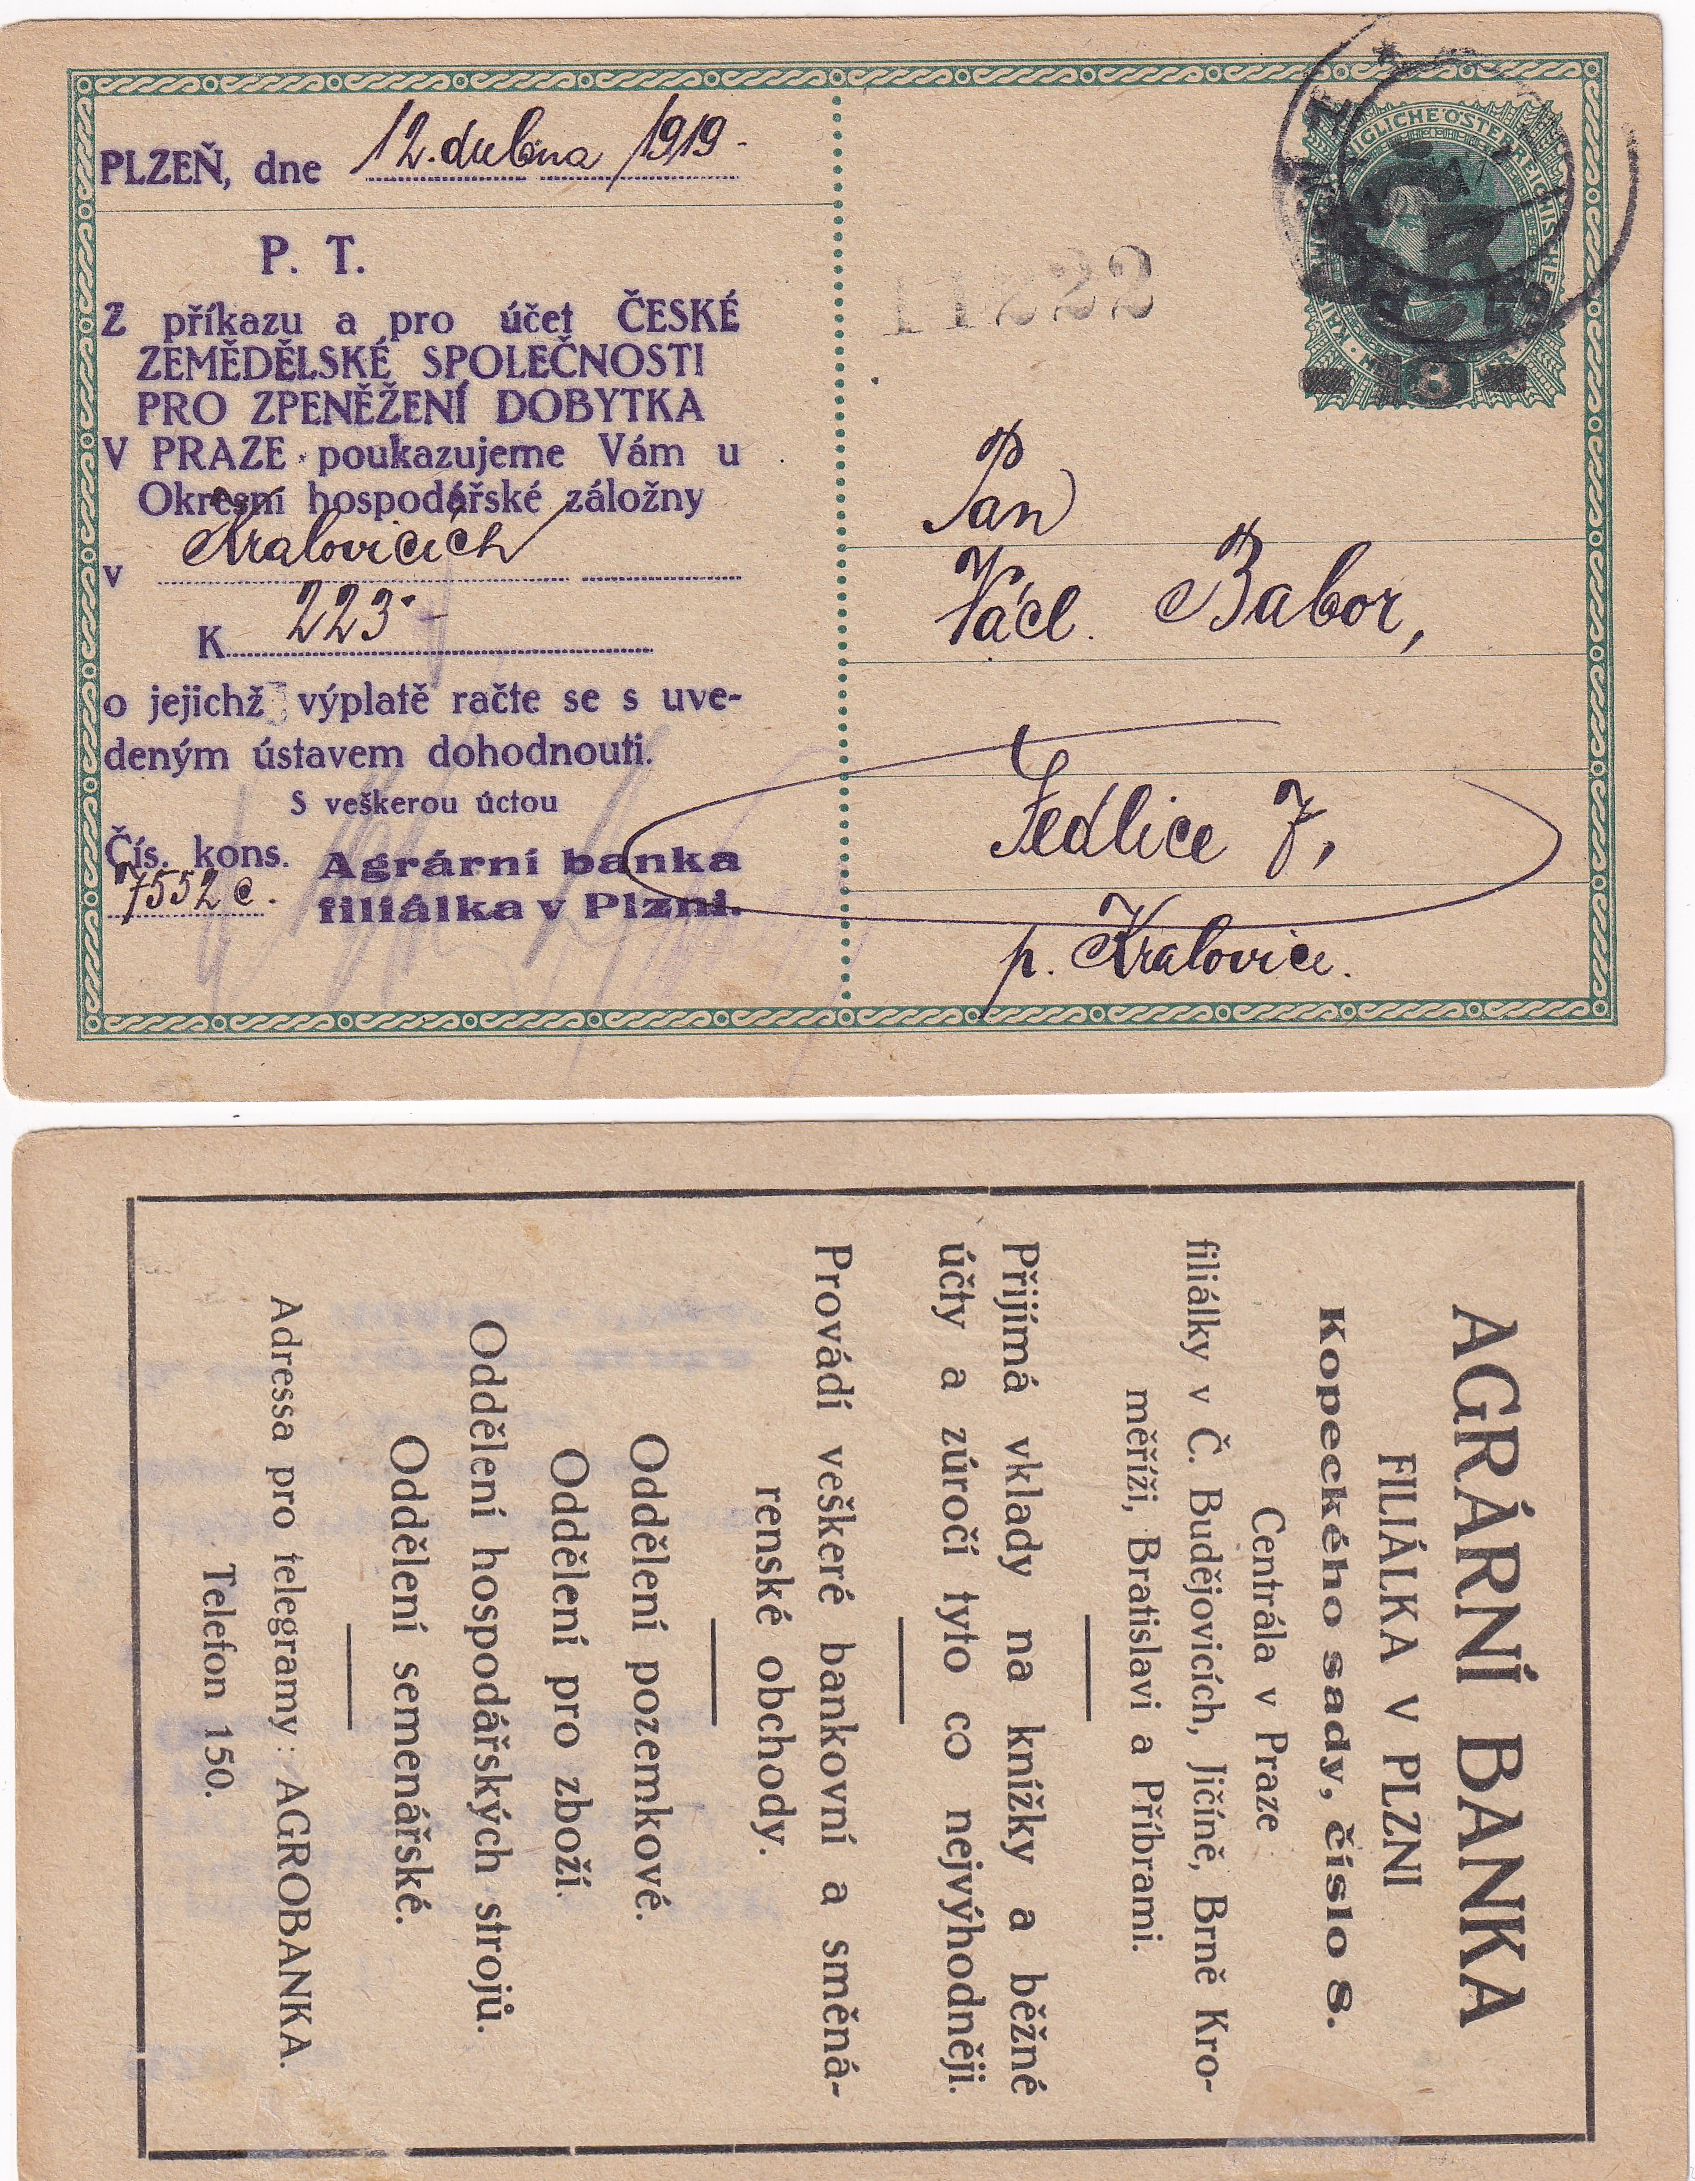 PLZEŇ, dne 12. dubna 1919.
P. T.
Z příkazu a pro účet ČESKÉ
ZEMĚDĚLSKÉ SPOLEČNOSTI
PRO ZPENĚŽENÍ DOBYTKA
V PRAZE poukazujeme Vám u
Okresní hospodářské záložny
v Kralovicích
K 223·-
o jejichž výplatě račte se s uve-
deným ústavem dohodnouti.
S veškerou úctou
Čís. kons.
7552 c.
Agrární banka
filiálka v Plzni.
11222
8
Pan
Václ. Babor,
Sedlice 7,
p. Kralovice.
AGRÁRNÍ BANKA
FILIÁLKA V PLZNI
Kopeckého sady, číslo 8.
Centrála v Praze
filiálky v Č. Budějovicích, Jičíně, Brně Kro-
měříži, Bratislavi a Příbrami.
Přijímá vklady na knížky a běžné
účty a zúročí tyto co nejvýhodněji.
Provádí veškeré bankovní a směná-
renské obchody.
Oddělení pozemkové.
Oddělení pro zboží.
Oddělení hospodářských strojů.
Oddělení semenářské.
Adressa pro telegramy: AGROBANKA.
Telefon 150.